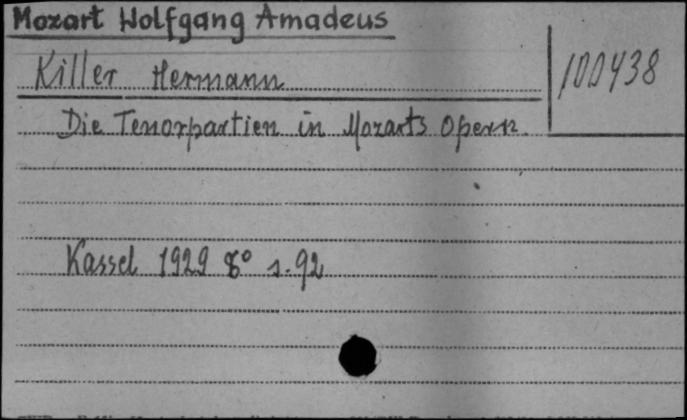 Mozart Wolfgang Amadeus
Killer Hermann
100438
Die Tenorpartien in Mozarts Opern.
Kassel 1929 8° s. 92